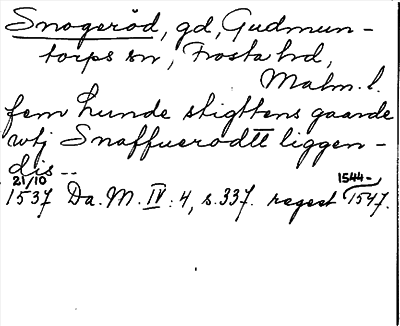 Snogeröd, gd, Gudmun-
torps sn, Frosta hd,
Malm. l.
fem hunde stigttens gaarde
wtj Snaffuerødtt liggen-
dis --
21/10
1537 Da. M. IV: 4, s. 337. regest 1544-
1547.